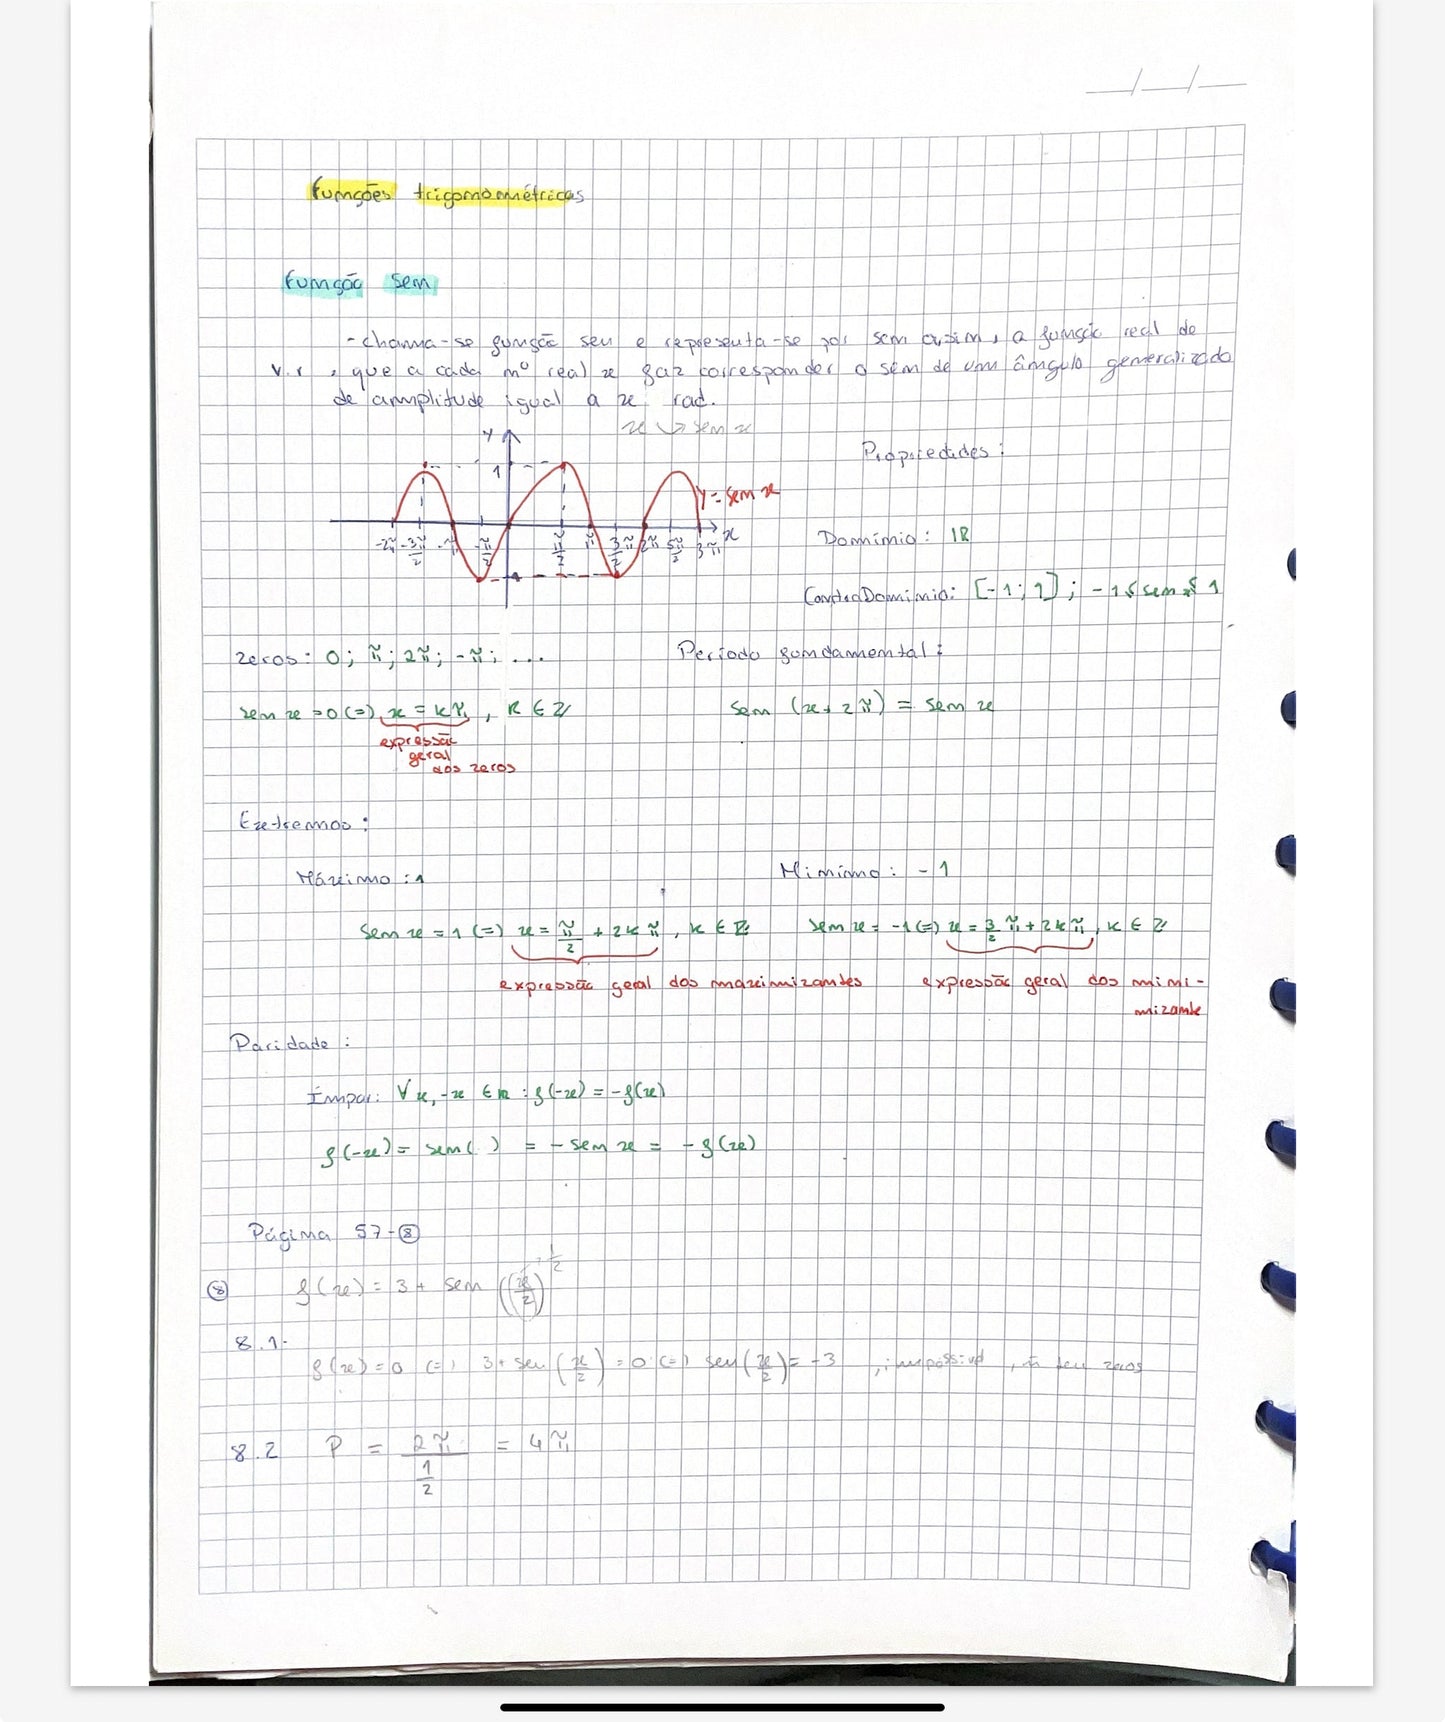 __/__/__
Funções trigonométricas
Função sen
- chama-se função seu e representa-se por sen assim, a função real de
v.r, que a cada nº real x faz corresponder o sen de um ângulo generalizado
de amplitude igual a x rad.
x ↦ sen x
y
1
y = sen x
x
-2π -3π/2 -π -π/2 π/2 π 3/2 π 2π 5π/2 3π
-1
Propriedades:
Domínio: IR
ContraDomínio: [-1; 1]; -1 ≤ sen x ≤ 1
zeros: 0; π; 2π; -π; ...
Período fundamental:
sen x = 0 (=) x = kπ, K ∈ Z
sen (x + 2π) = sen x
expressão
geral
dos zeros
Extremos:
Máximo: 1
Mínimo: -1
Sen x = 1 (=) x = π/2 + 2kπ, k ∈ Z
sen x = -1 (=) x = 3/2 π + 2kπ, k ∈ Z
expressão geral dos maximizantes
expressão geral dos mini-
mizante
Paridade:
Ímpar: ∀x, -x ∈ IR : f(-x) = -f(x)
f(-x) = sen( ) = - sen x = - f(x)
Página 57-⑧
⑧ f(x) = 3 + sen ((x/2)) 1/2
8.1.
f(x) = 0 (=) 3 + sen (x/2) = 0 (=) sen (x/2) = -3, impossível, ñ tem zeros
8.2 P = 2π / (1/2) = 4π